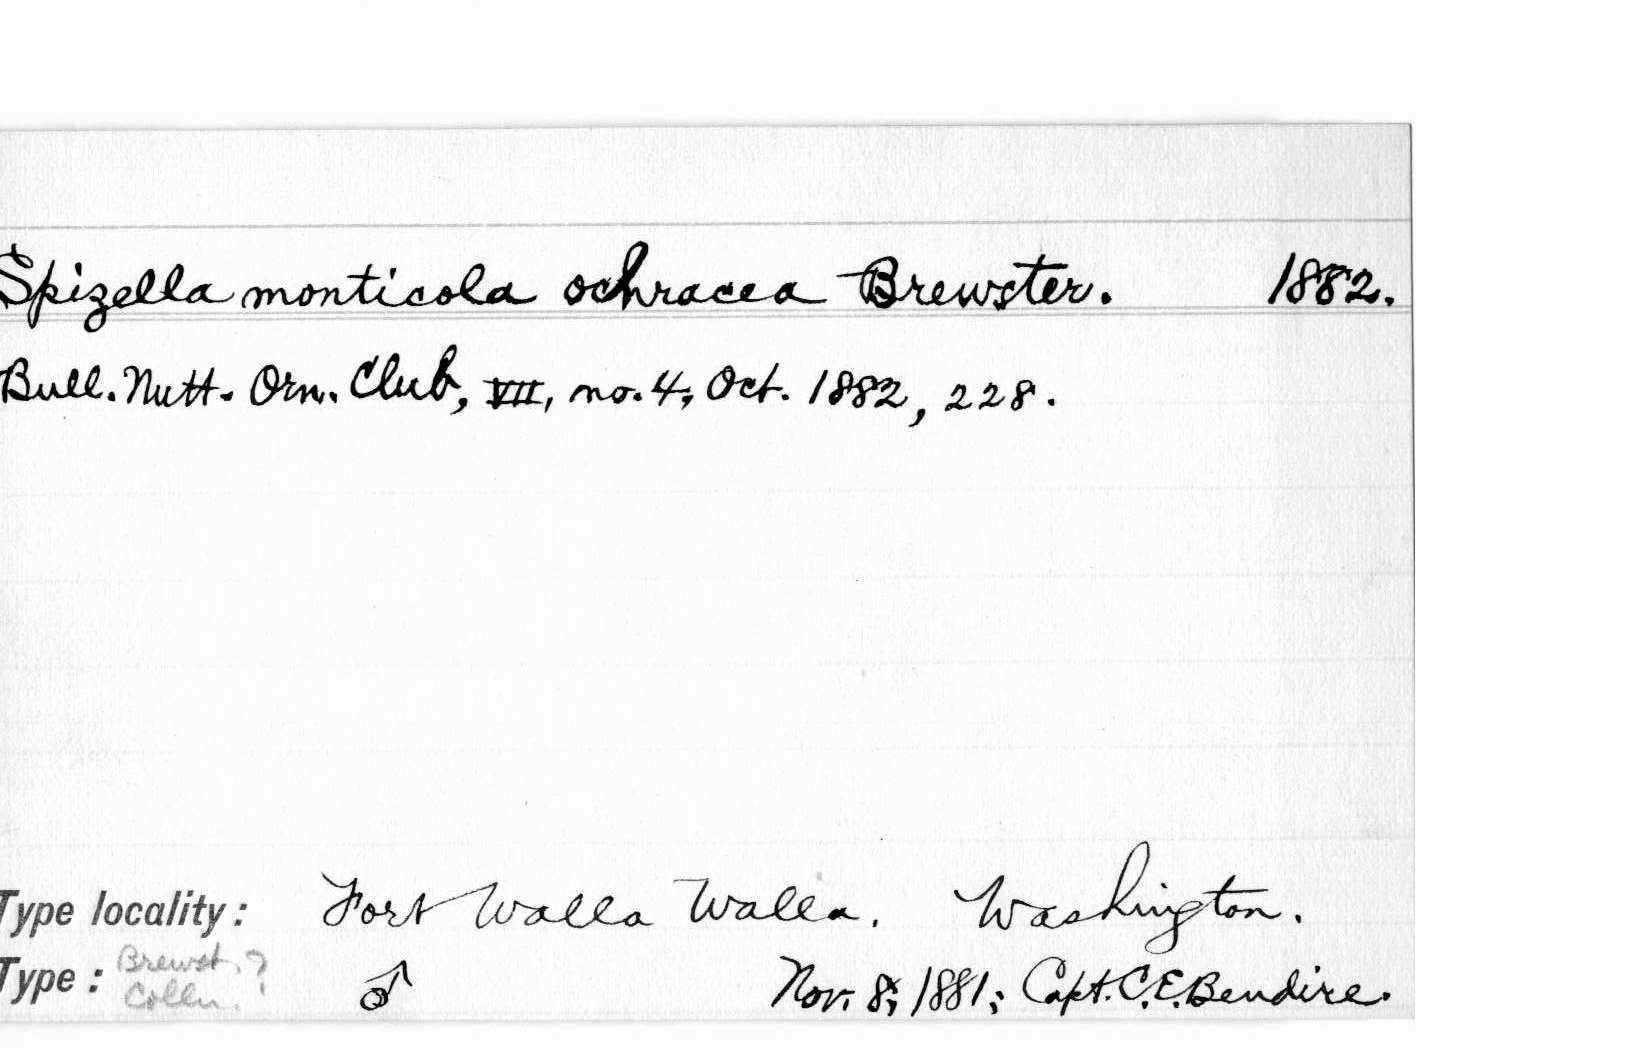 Spizella monticola ochracea Brewster. 1882.
Bull. Nutt. Orn. Club, VII, no. 4, Oct. 1882, 228.
Type locality: Fort Walla Walla, Washington.
Type: Brewst. ? Colln. ♂ Nov. 8, 1881; Capt. C. E. Bendire.